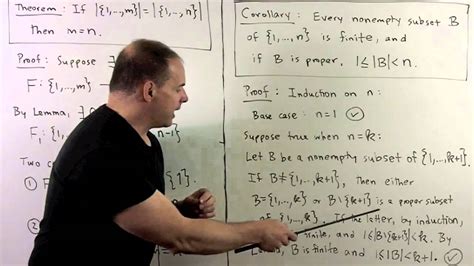 Theorem: If |{1,...,m}| = |{1,...,n}|
then m=n.
Proof: Suppose ∃
F: {1,...,m}
By Lemma, ∃
F₁: {1,... n-1}
Two c
① {1}.
②
Corollary: Every nonempty subset B
of {1,...,n} is finite, and
if B is proper, 1≤|B|<n.
Proof: Induction on n:
Base case: n=1 ✓
Suppose true when n=k:
Let B be a nonempty subset of {1,...,k+1}.
If B≠{1,...,k+1}, then either
B={1,...,k} or B\{k+1} is a proper subset
of {1,...,k}. If the latter, by induction,
finite, and 1≤|B\{k+1}|<k. By
B is finite and 1≤|B|<k+1. ✓